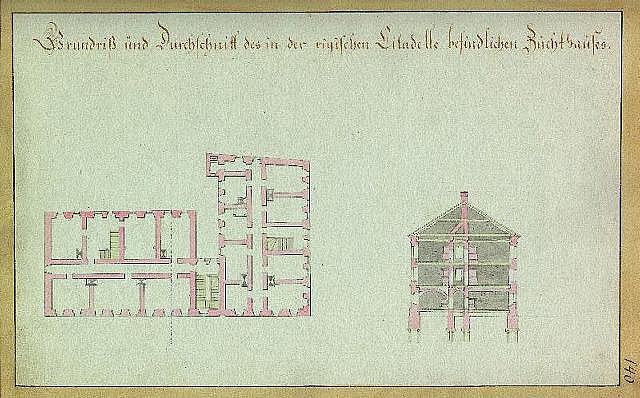 Grundriß und Durchschnitt des in der rigischen Citadelle befindlichen Zuchthauses.
140